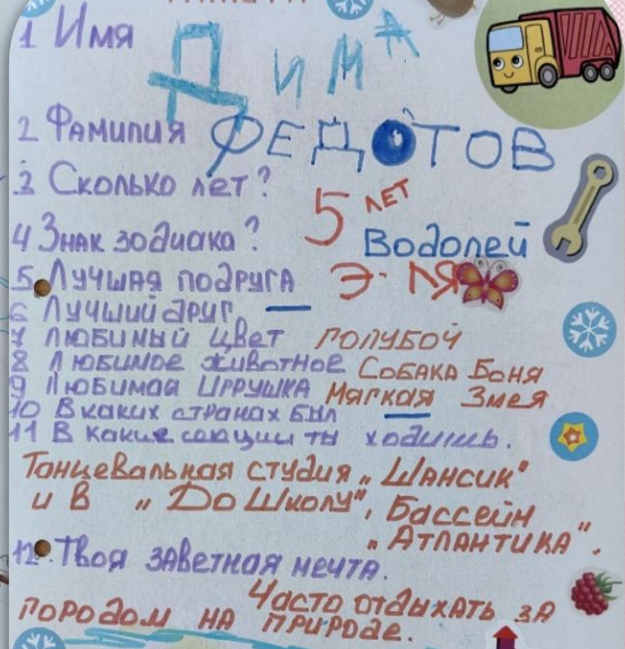 1 Имя Дима
2 Фамилия ФЕДОТОВ
3 Сколько лет? 5 ЛЕТ
4 Знак зодиака? Водолей
5 Лучшая подруга Э-ЛЯ
6 Лучший друг —
7 Любимый цвет голубой
8 Любимое животное Собака Боня
9 Любимая Игрушка Мягкая Змея
10 В каких странах был —
11 В какие секции ты ходишь.
Танцевальная студия „Шансик"
и в „До Школы", Бассейн
„Атлантика".
12. Твоя заветная мечта.
Часто отдыхать за
городом на природе.